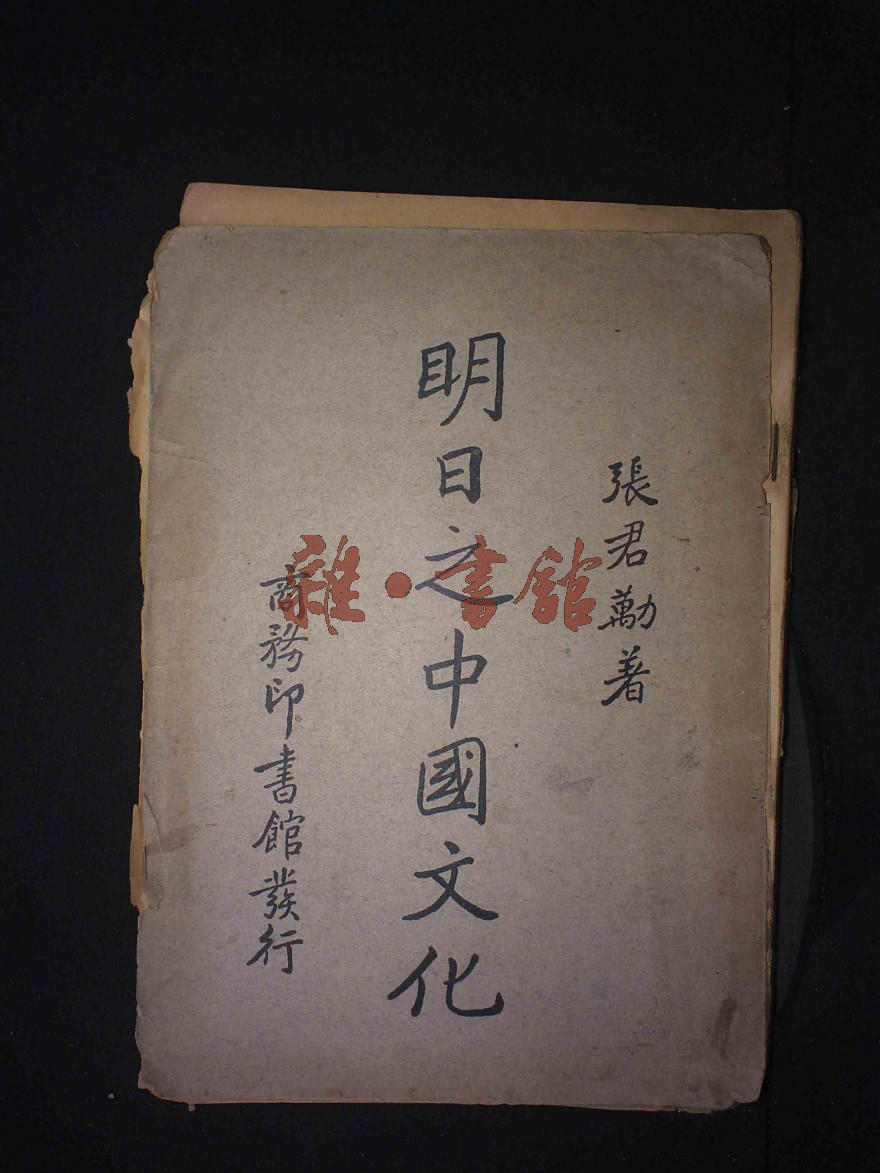 張君勱著
明日之中國文化
商務印書館發行
雜·書館